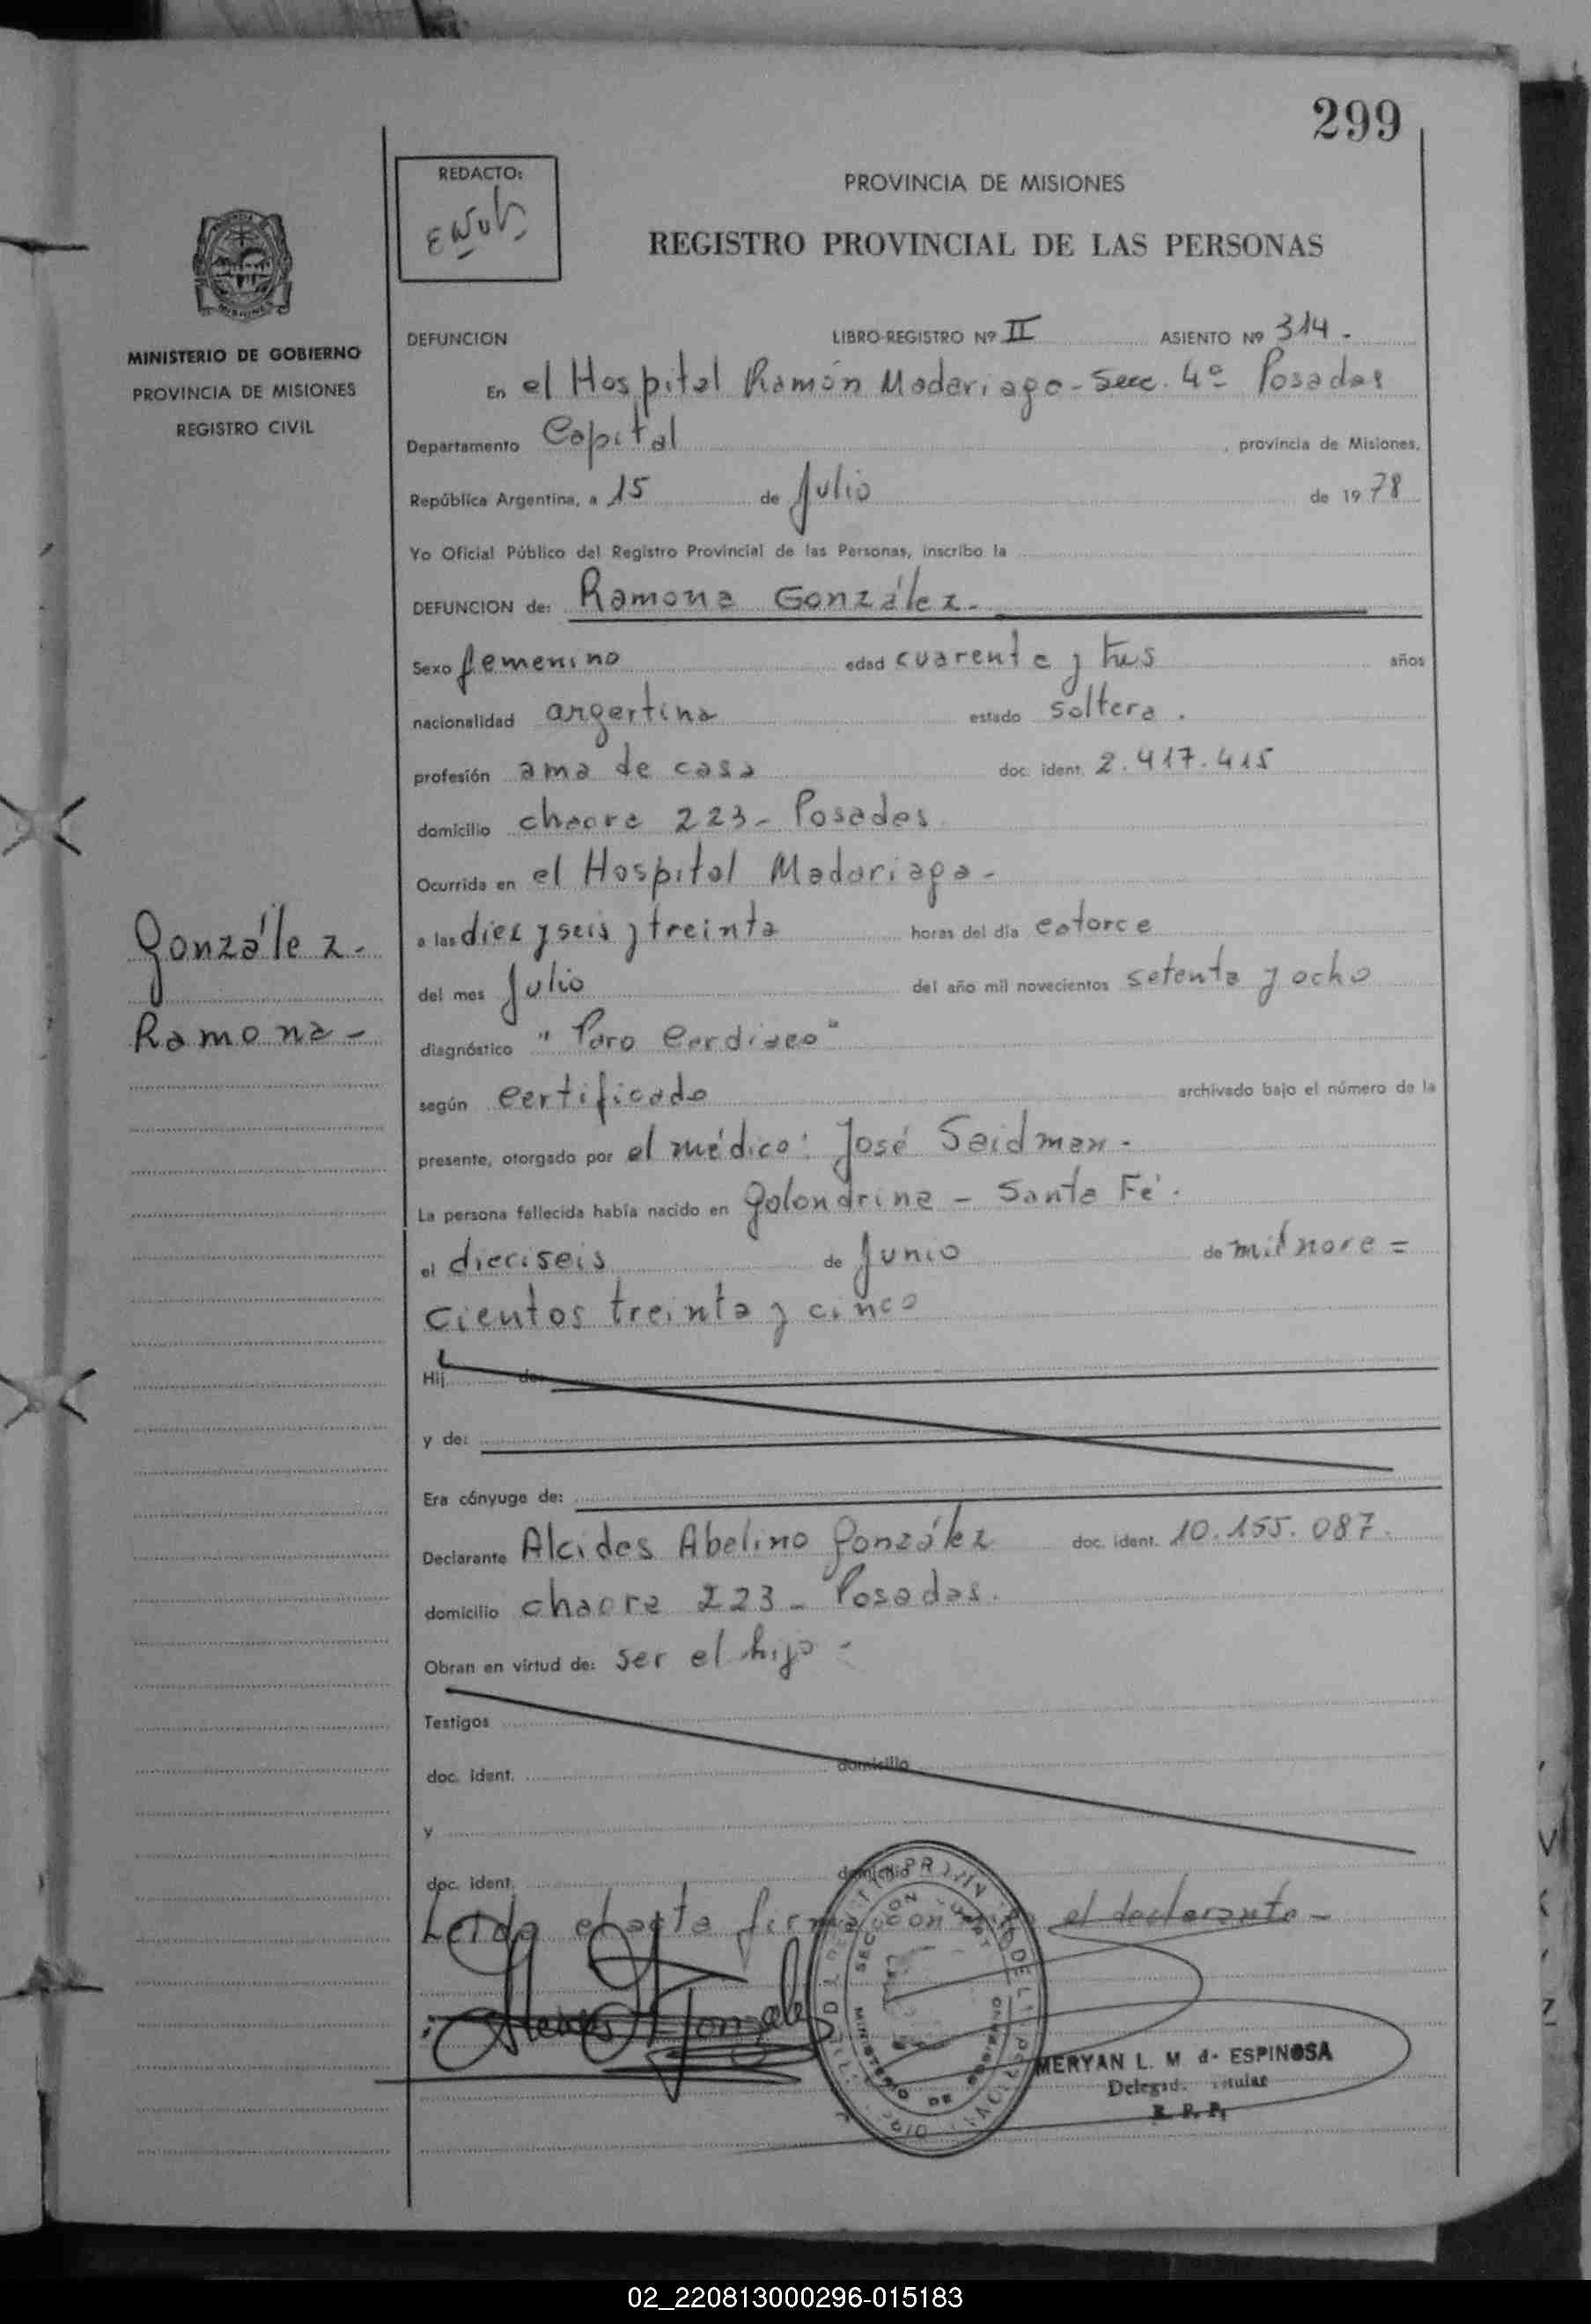 299
REDACTO:
PROVINCIA DE MISIONES
REGISTRO PROVINCIAL DE LAS PERSONAS
MINISTERIO DE GOBIERNO
PROVINCIA DE MISIONES
REGISTRO CIVIL
DEFUNCION LIBRO-REGISTRO Nº II ASIENTO Nº 314.
En el Hospital Ramón Madariaga - Secc. 4º Posadas
Departamento Capital , provincia de Misiones,
República Argentina, a 15 de Julio de 1978
Yo Oficial Público del Registro Provincial de las Personas, inscribo la
DEFUNCION de: Ramona González.
Sexo femenino edad cuarenta y tres años
nacionalidad argentina estado soltera.
profesión ama de casa doc. ident. 2.417.415
domicilio chacra 223 - Posadas
Ocurrida en el Hospital Madariaga -
a las diez y seis y treinta horas del día catorce
del mes Julio del año mil novecientos setenta y ocho
diagnóstico "Paro Cardiaco"
según certificado archivado bajo el número de la
presente, otorgado por el médico: José Saidman -
La persona fallecida había nacido en Golondrina - Santa Fé.
el dieciseis de Junio de mil nove=
cientos treinta y cinco
Hij de:
y de:
Era cónyuge de:
Declarante Alcides Abelino González doc. ident. 10.155.087.
domicilio chacra 223 - Posadas.
Obran en virtud de: ser el hijo -
Testigos
doc. ident. domicilio
y
doc. ident. domicilio
Leida el acta firma con el declarante -
González.
Ramona -
MERYAN L. M de ESPINOSA
Delegada Titular
R. P. P.
02_220813000296-015183